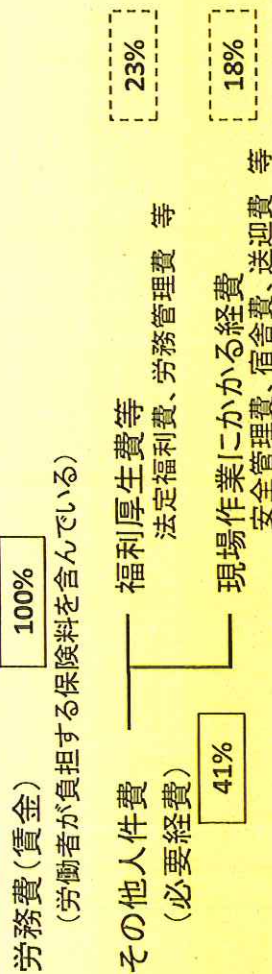 労務費(賃金)
100%
(労働者が負担する保険料を含んでいる)
その他人件費
(必要経費)
41%
福利厚生費等
法定福利費、労務管理費 等
23%
現場作業にかかる経費
安全管理費、宿舎費、送迎費 等
18%